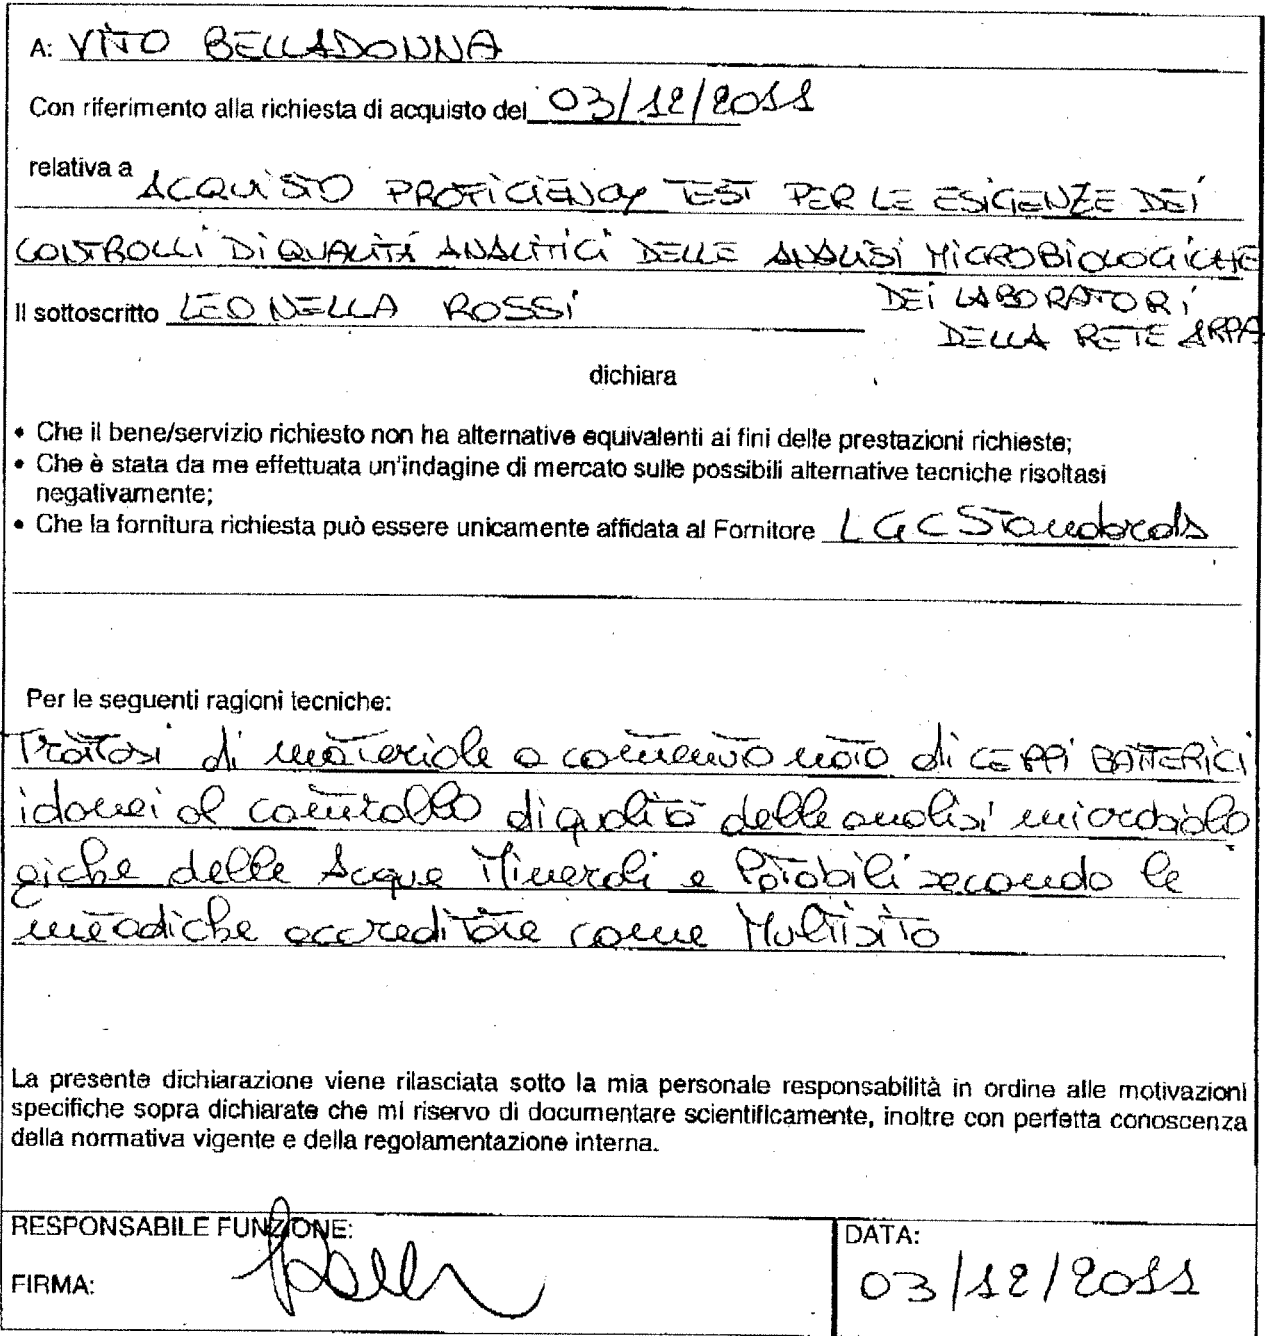 A: VITO BELLADONNA
Con riferimento alla richiesta di acquisto del 03/12/2011
relativa a ACQUISTO PROFICIENCY TEST PER LE ESIGENZE DEI
CONTROLLI DI QUALITÀ ANALITICI DELLE ANALISI MICROBIOLOGICHE
DEI LABORATORI
Il sottoscritto LEONELLA ROSSI
DELLA RETE ARPA
dichiara
• Che il bene/servizio richiesto non ha alternative equivalenti ai fini delle prestazioni richieste;
• Che è stata da me effettuata un'indagine di mercato sulle possibili alternative tecniche risoltasi
negativamente;
• Che la fornitura richiesta può essere unicamente affidata al Fornitore LGC Standards
Per le seguenti ragioni tecniche:
Trattasi di materiale a contenuto noto di CEPPI BATTERICI
idonei al controllo di qualità delle analisi microbiolo
giche delle Acque Minerali e Potabili secondo le
metodiche accreditate come Multisito
La presente dichiarazione viene rilasciata sotto la mia personale responsabilità in ordine alle motivazioni
specifiche sopra dichiarate che mi riservo di documentare scientificamente, inoltre con perfetta conoscenza
della normativa vigente e della regolamentazione interna.
RESPONSABILE FUNZIONE:
FIRMA:
DATA:
03/12/2011